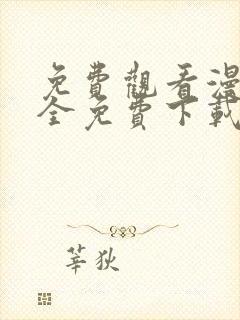 免費觀看漫
全免費下載
莘狄